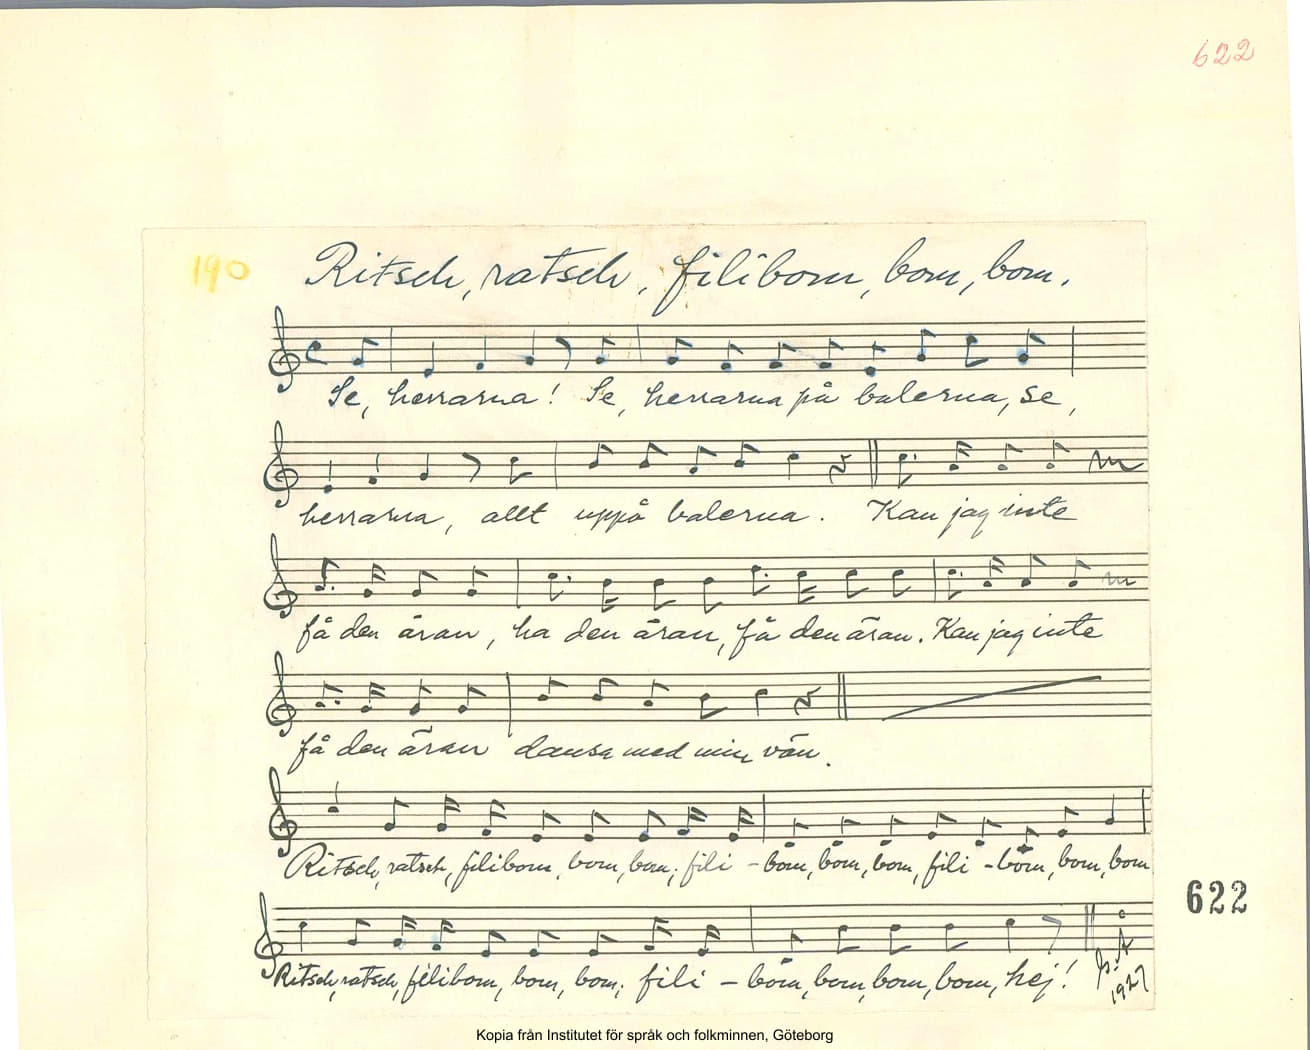 622
190
Ritsch, ratsch, filibom, bom, bom.
Se, herrarna! Se, herrarna på balerna, se,
herrarna, allt uppå balerna. Kan jag inte
få den äran, ha den äran, få den äran. Kan jag inte
få den äran dansa med min vän.
Ritsch, ratsch, filibom, bom, bom; fili - bom, bom, bom, fili - bom, bom, bom
622
Ritsch, ratsch, filibom, bom, bom; fili - bom, bom, bom, bom, hej!
1927
Kopia från Institutet för språk och folkminnen, Göteborg